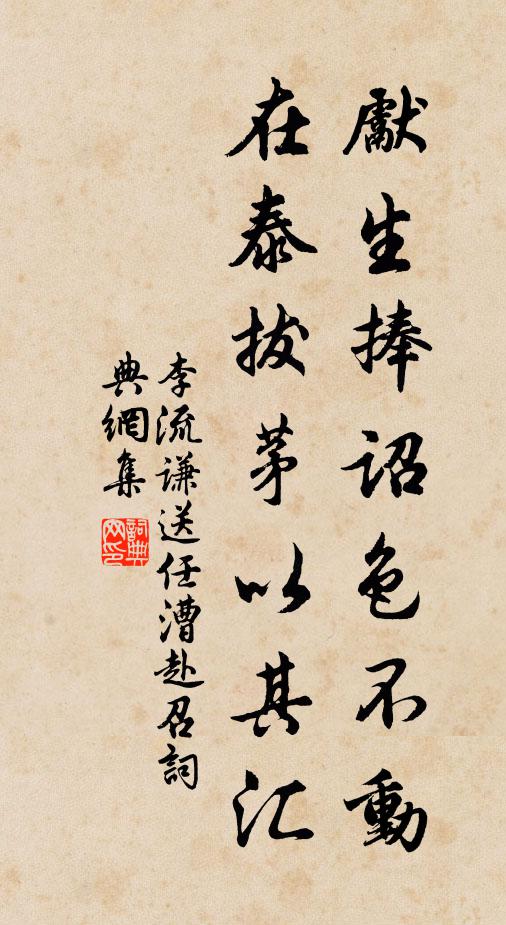 獻生捧詔色不動
在泰拔茅以其汇
李流謙送任漕赴召詞
典網集
詞典網印